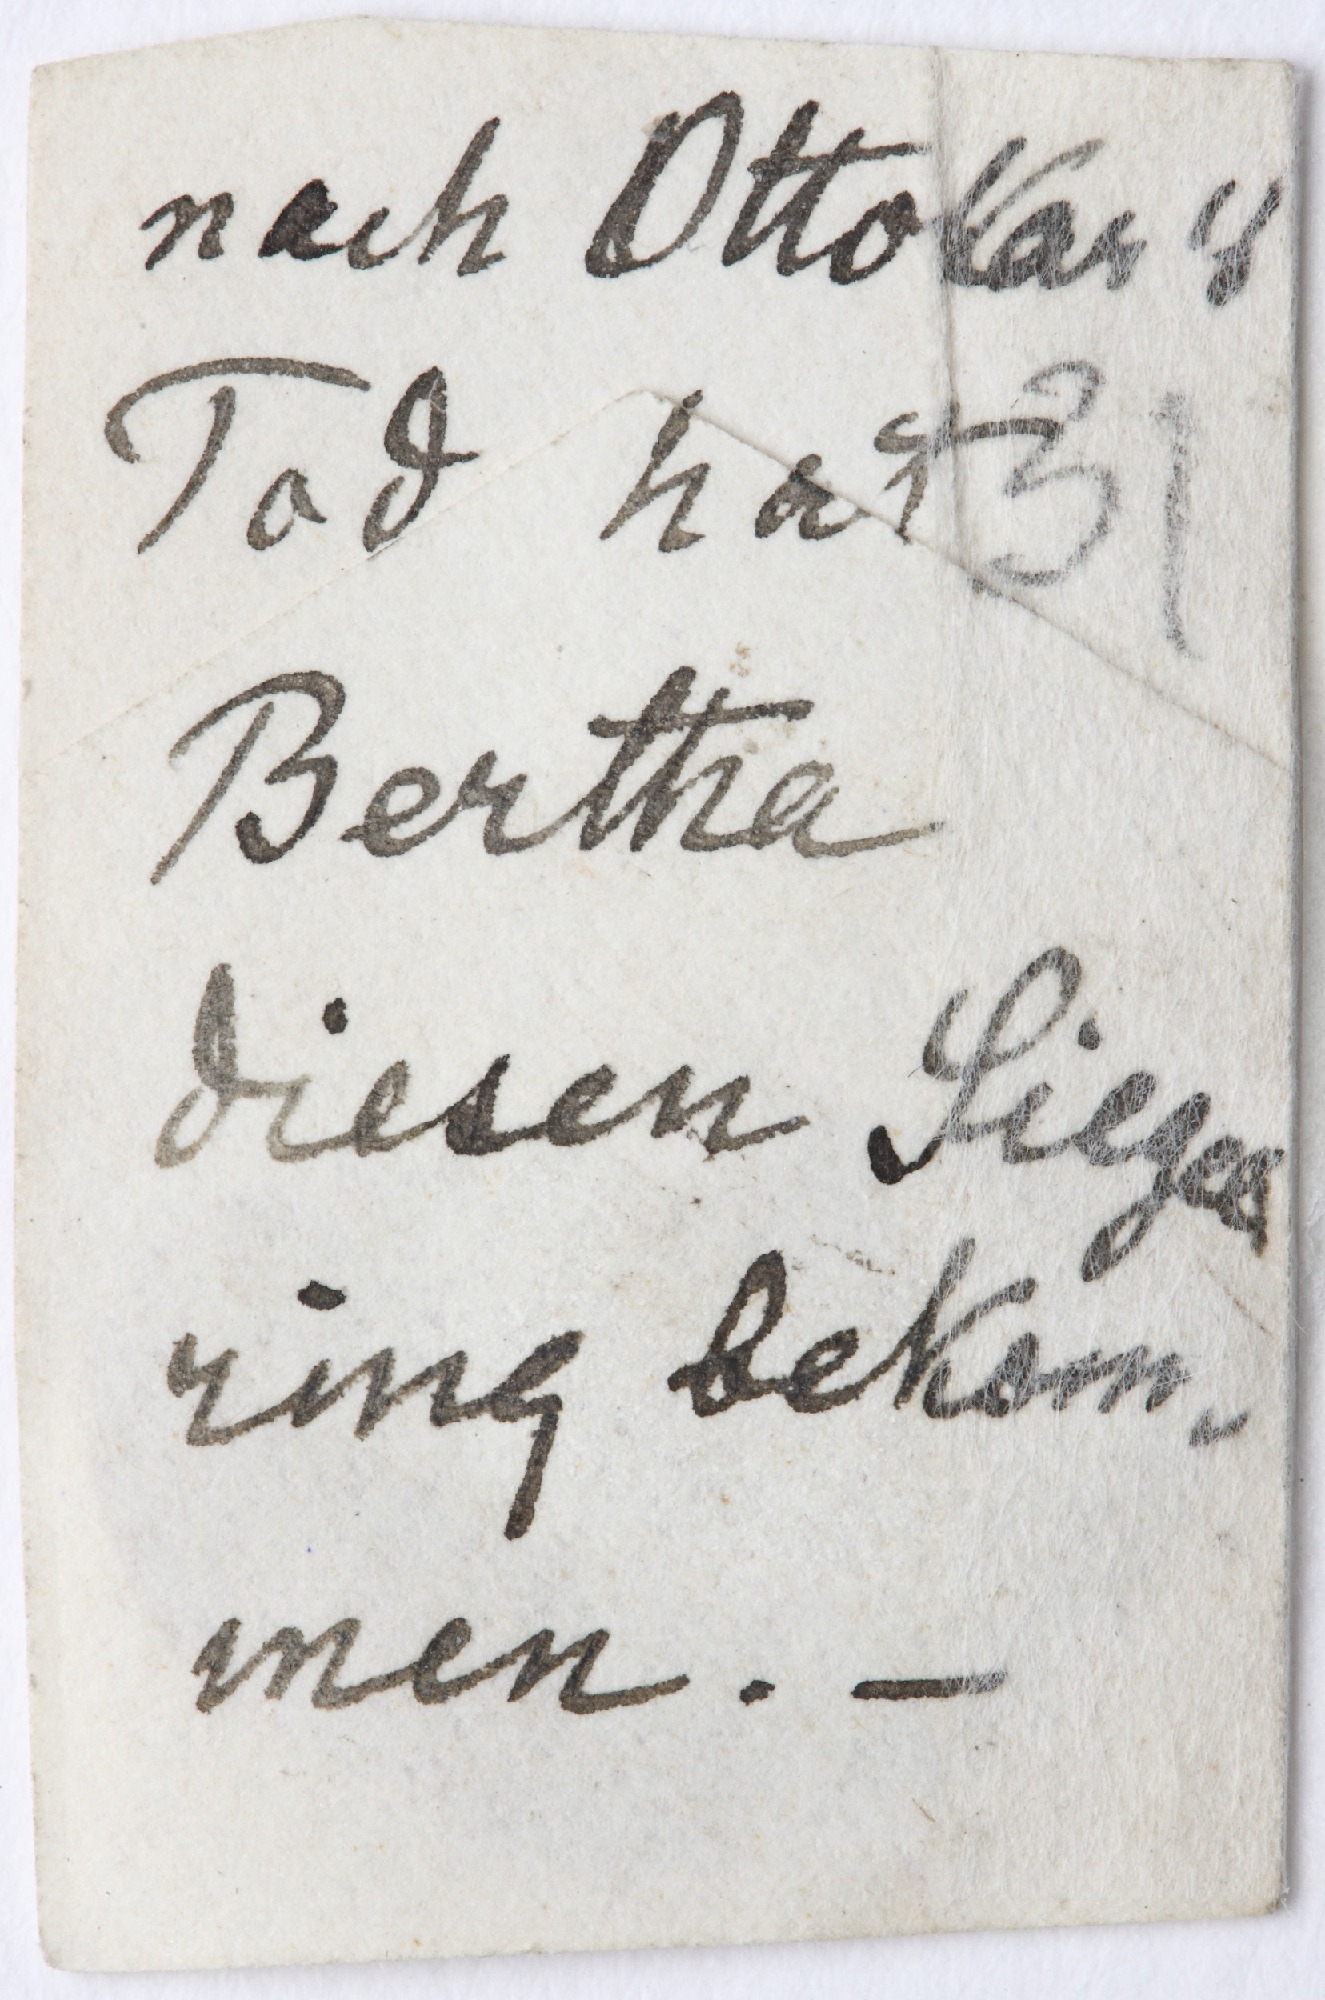 nach Ottokar's
Tod hat 31
Bertha
diesen Siegel
ring bekom-
men. —